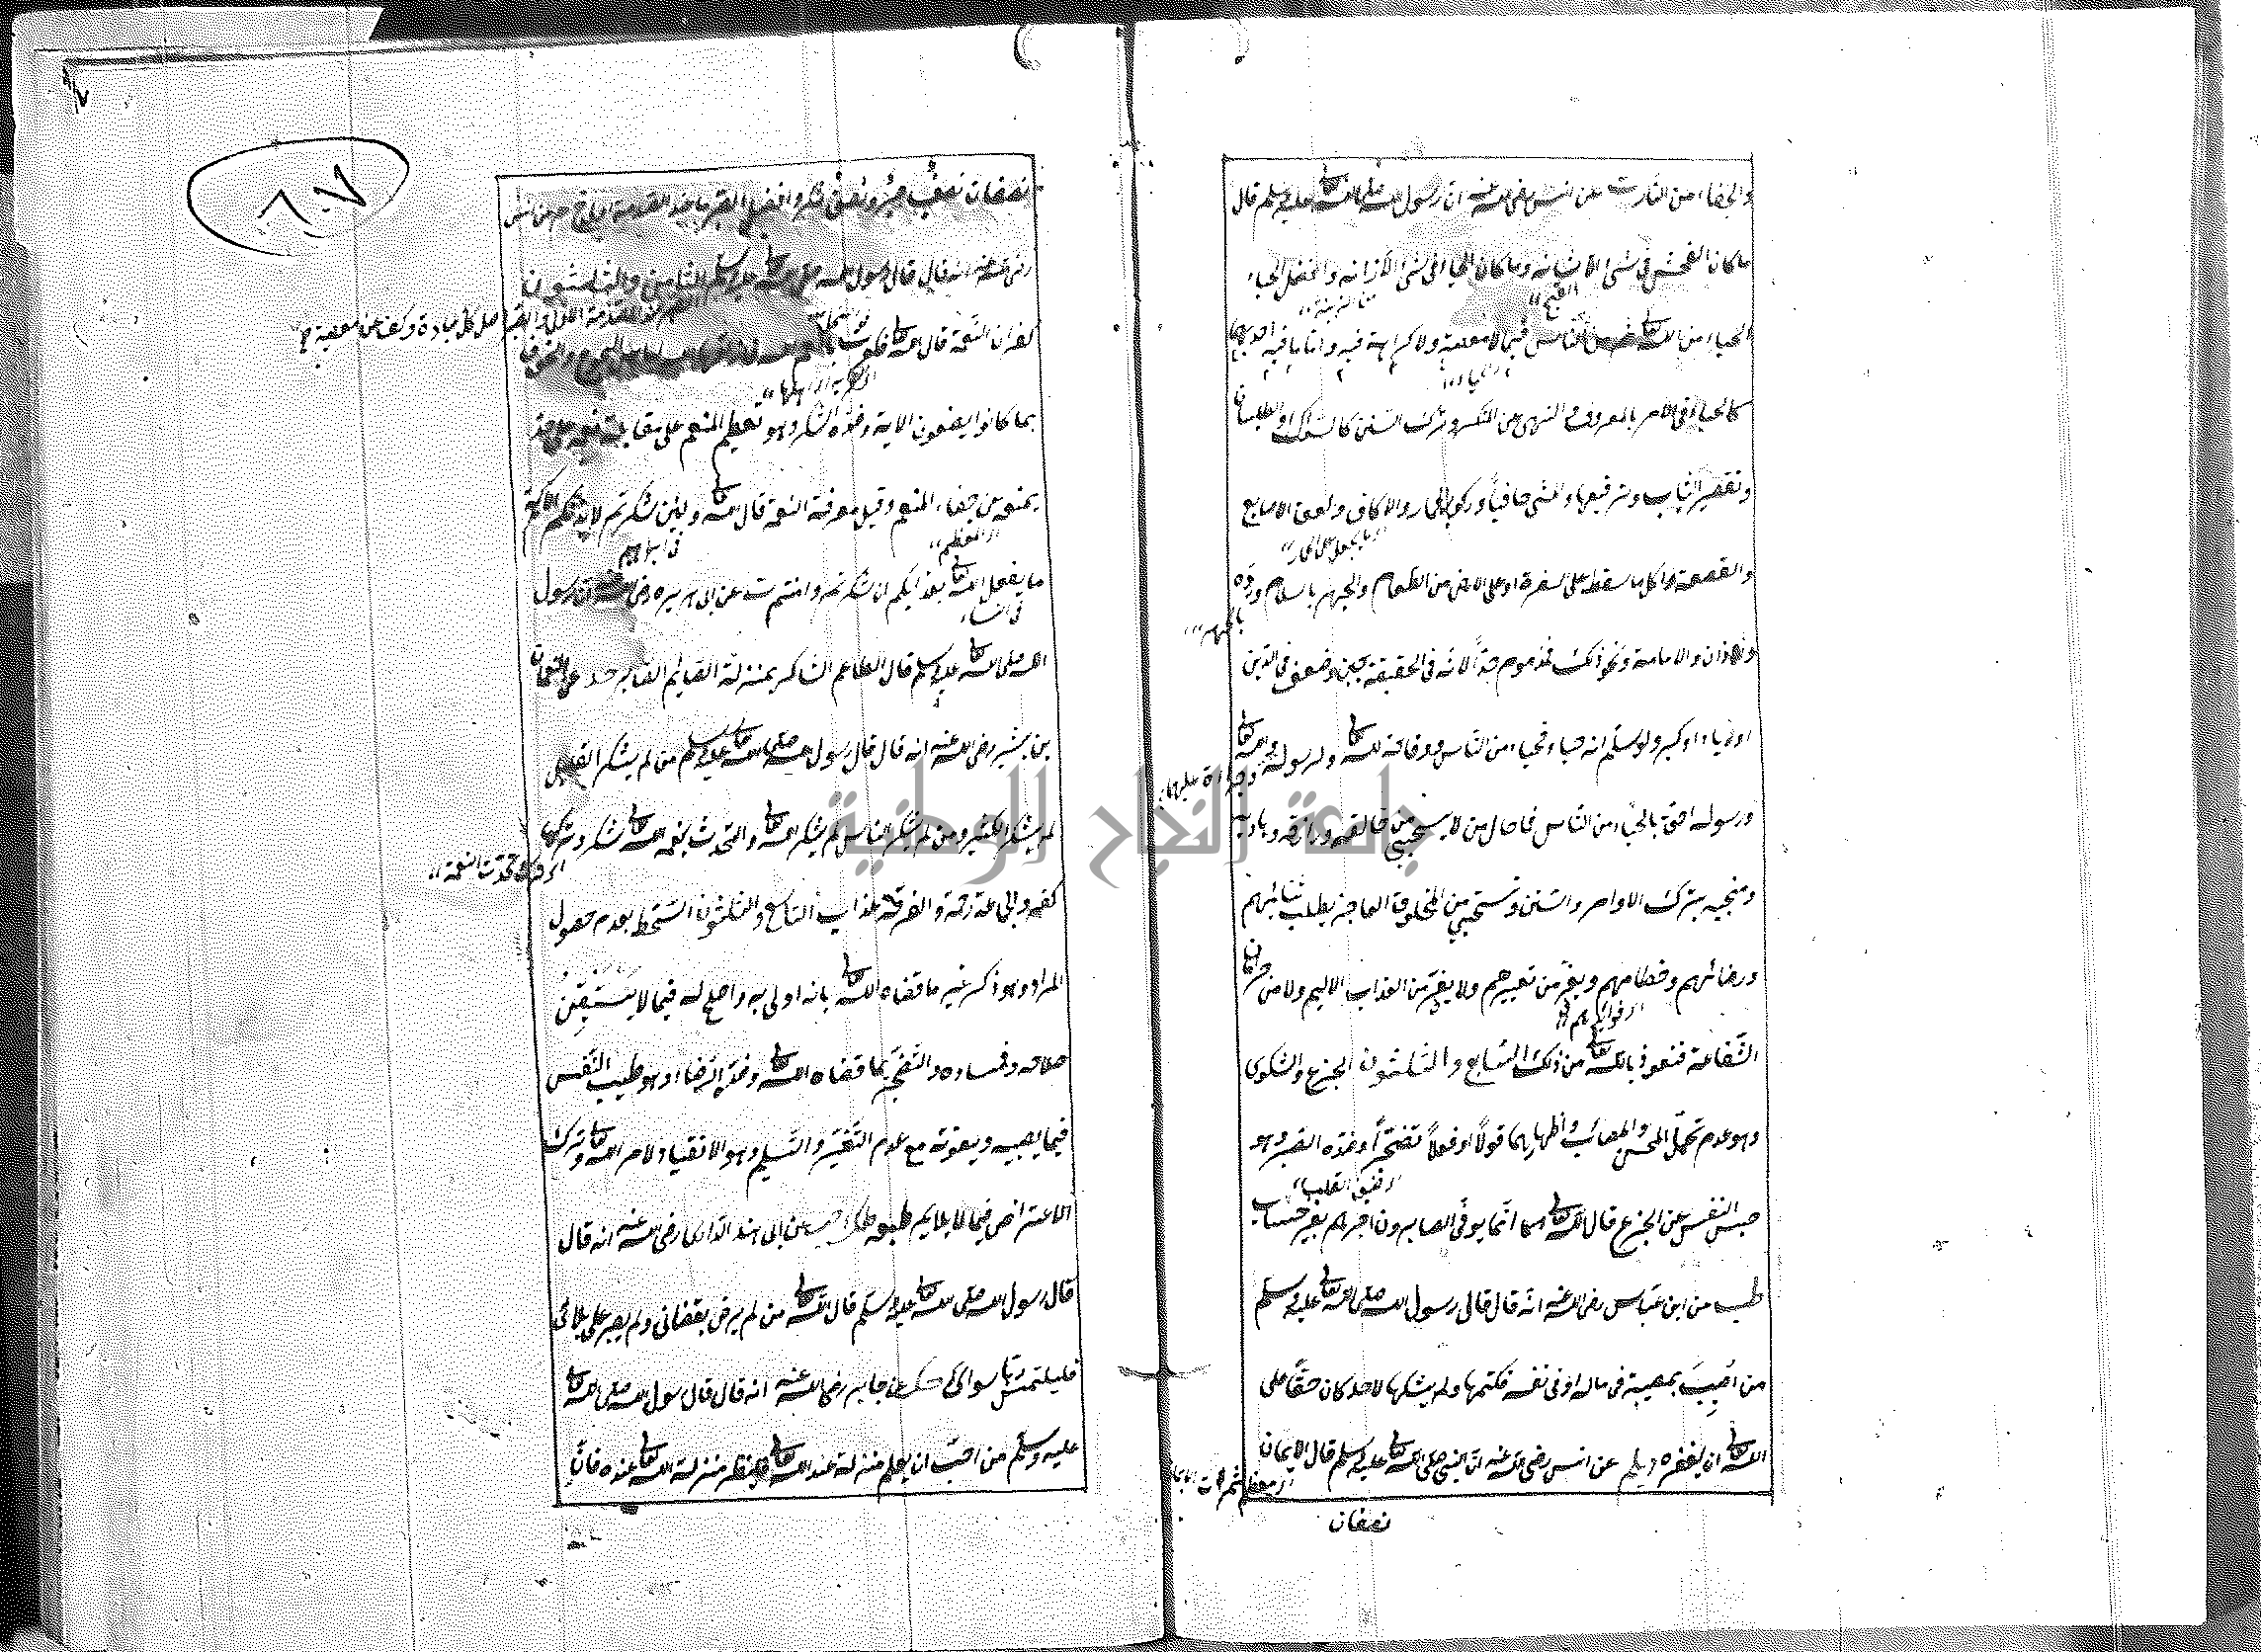 والجفاء من النار ت عن انس رضى الله عنه ان رسول الله صلى الله تعالى عليه وسلم قال
ما كان الفحش فى شئ الا شانه وما كان الحياء فى شئ الا زانه وافضل الحياء
القبح
من الزينة
الحياء من الله تعالى من الناس فيما لا معصية ولا كراهة فيه واما ما فيه احديهما
كالحياء فى الامر بالمعروف والنهى عن المنكر وترك السنن كالسواك والطيلسان
وتقصير الثياب وترقيعها والمشى حافياً وركوب الحمار والاكاف ولعق الاصابع
ما يجعل على الحمار
والقصعة واكل ما سقط على السفرة او على الارض من الطعام والجهر بالسلام ورده
بالجهر
والاذان والامامة ونحو ذلك فمذموم جداً لانه فى الحقيقة جبن وضعف فى الدين
او رياء او كبر ولو سلم انه حياء فحياء من الناس ووقاحة لله تعالى ولرسوله والله تعالى
وجراءة عليهما
ورسوله احق بالحياء من الناس فما حال من لا يستحيى من خالقه ورازقه وهاديه
ومنجيه بترك الاوامر والسنن وتستحيى من المخلوق العاجز يطلب ثنائهم
ورضائهم وحطامهم ويفر من تعييرهم ولا يفر من العذاب الاليم ولا من حرمان
الشفاعة فنعوذ بالله تعالى من ذلك السابع والثلثون الجزع والشكوى
وهو عدم تحمل المحن والمصائب واظهارهما قولاً او فعلاً تضجراً وضده الصبر وهو
حبس النفس عن الجزع قال الله تعالى انما يوفى الصابرون اجرهم بغير حساب
طب عن ابن عباس رضى الله عنه انه قال قال رسول الله صلى الله تعالى عليه وسلم
من اصيب بمصيبة فى ماله او فى نفسه فكتمها ولم يشكها لاحد كان حقاً على
الله تعالى ان يغفر له ديلم عن انس رضى الله عنه ان النبى صلى الله تعالى عليه وسلم قال الايمان
نصفان
٦٧
نصفان نصف صبر ونصف شكر وافضل الصبر ما عند الصدمة الاولى خ م عن انس
رضى الله عنه انه قال قال رسول الله صلى الله تعالى عليه وسلم الثامن والثلثون
كفران النعمة قال الله تعالى فكفرت بانعم الله فاذاقها الله لباس الجوع والخوف
بما كانوا يصنعون الاية وضده الشكر وهو تعظيم المنعم على مقابلة نعمه على حد
يمنعه عن جفاء المنعم وقيل معرفة النعمة قال الله تعالى ولئن شكرتم لازيدنكم الاية
فى ابراهيم
ما يفعل الله تعالى بعذابكم ان شكرتم وامنتم ت عن ابى هريرة رضى الله عنه ان رسول
فى النساء
الله صلى الله تعالى عليه وسلم قال الطاعم الشاكر بمنزلة الصائم الصابر حد عن النعمان
بن بشير رضى الله عنه انه قال قال رسول الله صلى الله تعالى عليه وسلم من لم يشكر القليل
لم يشكر الكثير ومن لم يشكر الناس لم يشكر الله تعالى والتحدث بنعمة الله تعالى شكر وتركها
كفر والجماعة رحمة والفرقة عذاب التاسع والثلثون السخط بعدم حصول
المراد وهو ذكر غير ما قضاه الله تعالى بانه اولى به واصلح له فيما لا يستيقن
صلاحه وفساده والتضجر بما قضاه الله تعالى وضده الرضاء وهو طيب النفس
فيما يصيبه ويفوته مع عدم التغير والتسليم وهو الانقياد لامر الله تعالى وترك
الاعتراض فيما لا يلايم طبعه عن ابى هند الدارى رضى الله عنه انه قال
قال رسول الله صلى الله تعالى عليه وسلم قال الله تعالى من لم يرض بقضائى ولم يصبر على بلائى
فليلتمس رباً سوائى عن جابر رضى الله عنه انه قال قال رسول الله صلى الله تعالى
عليه وسلم من احب ان يعلم منزلته عند الله تعالى فلينظر منزلة الله تعالى عنده فان
جامعة النجاح الوطنية